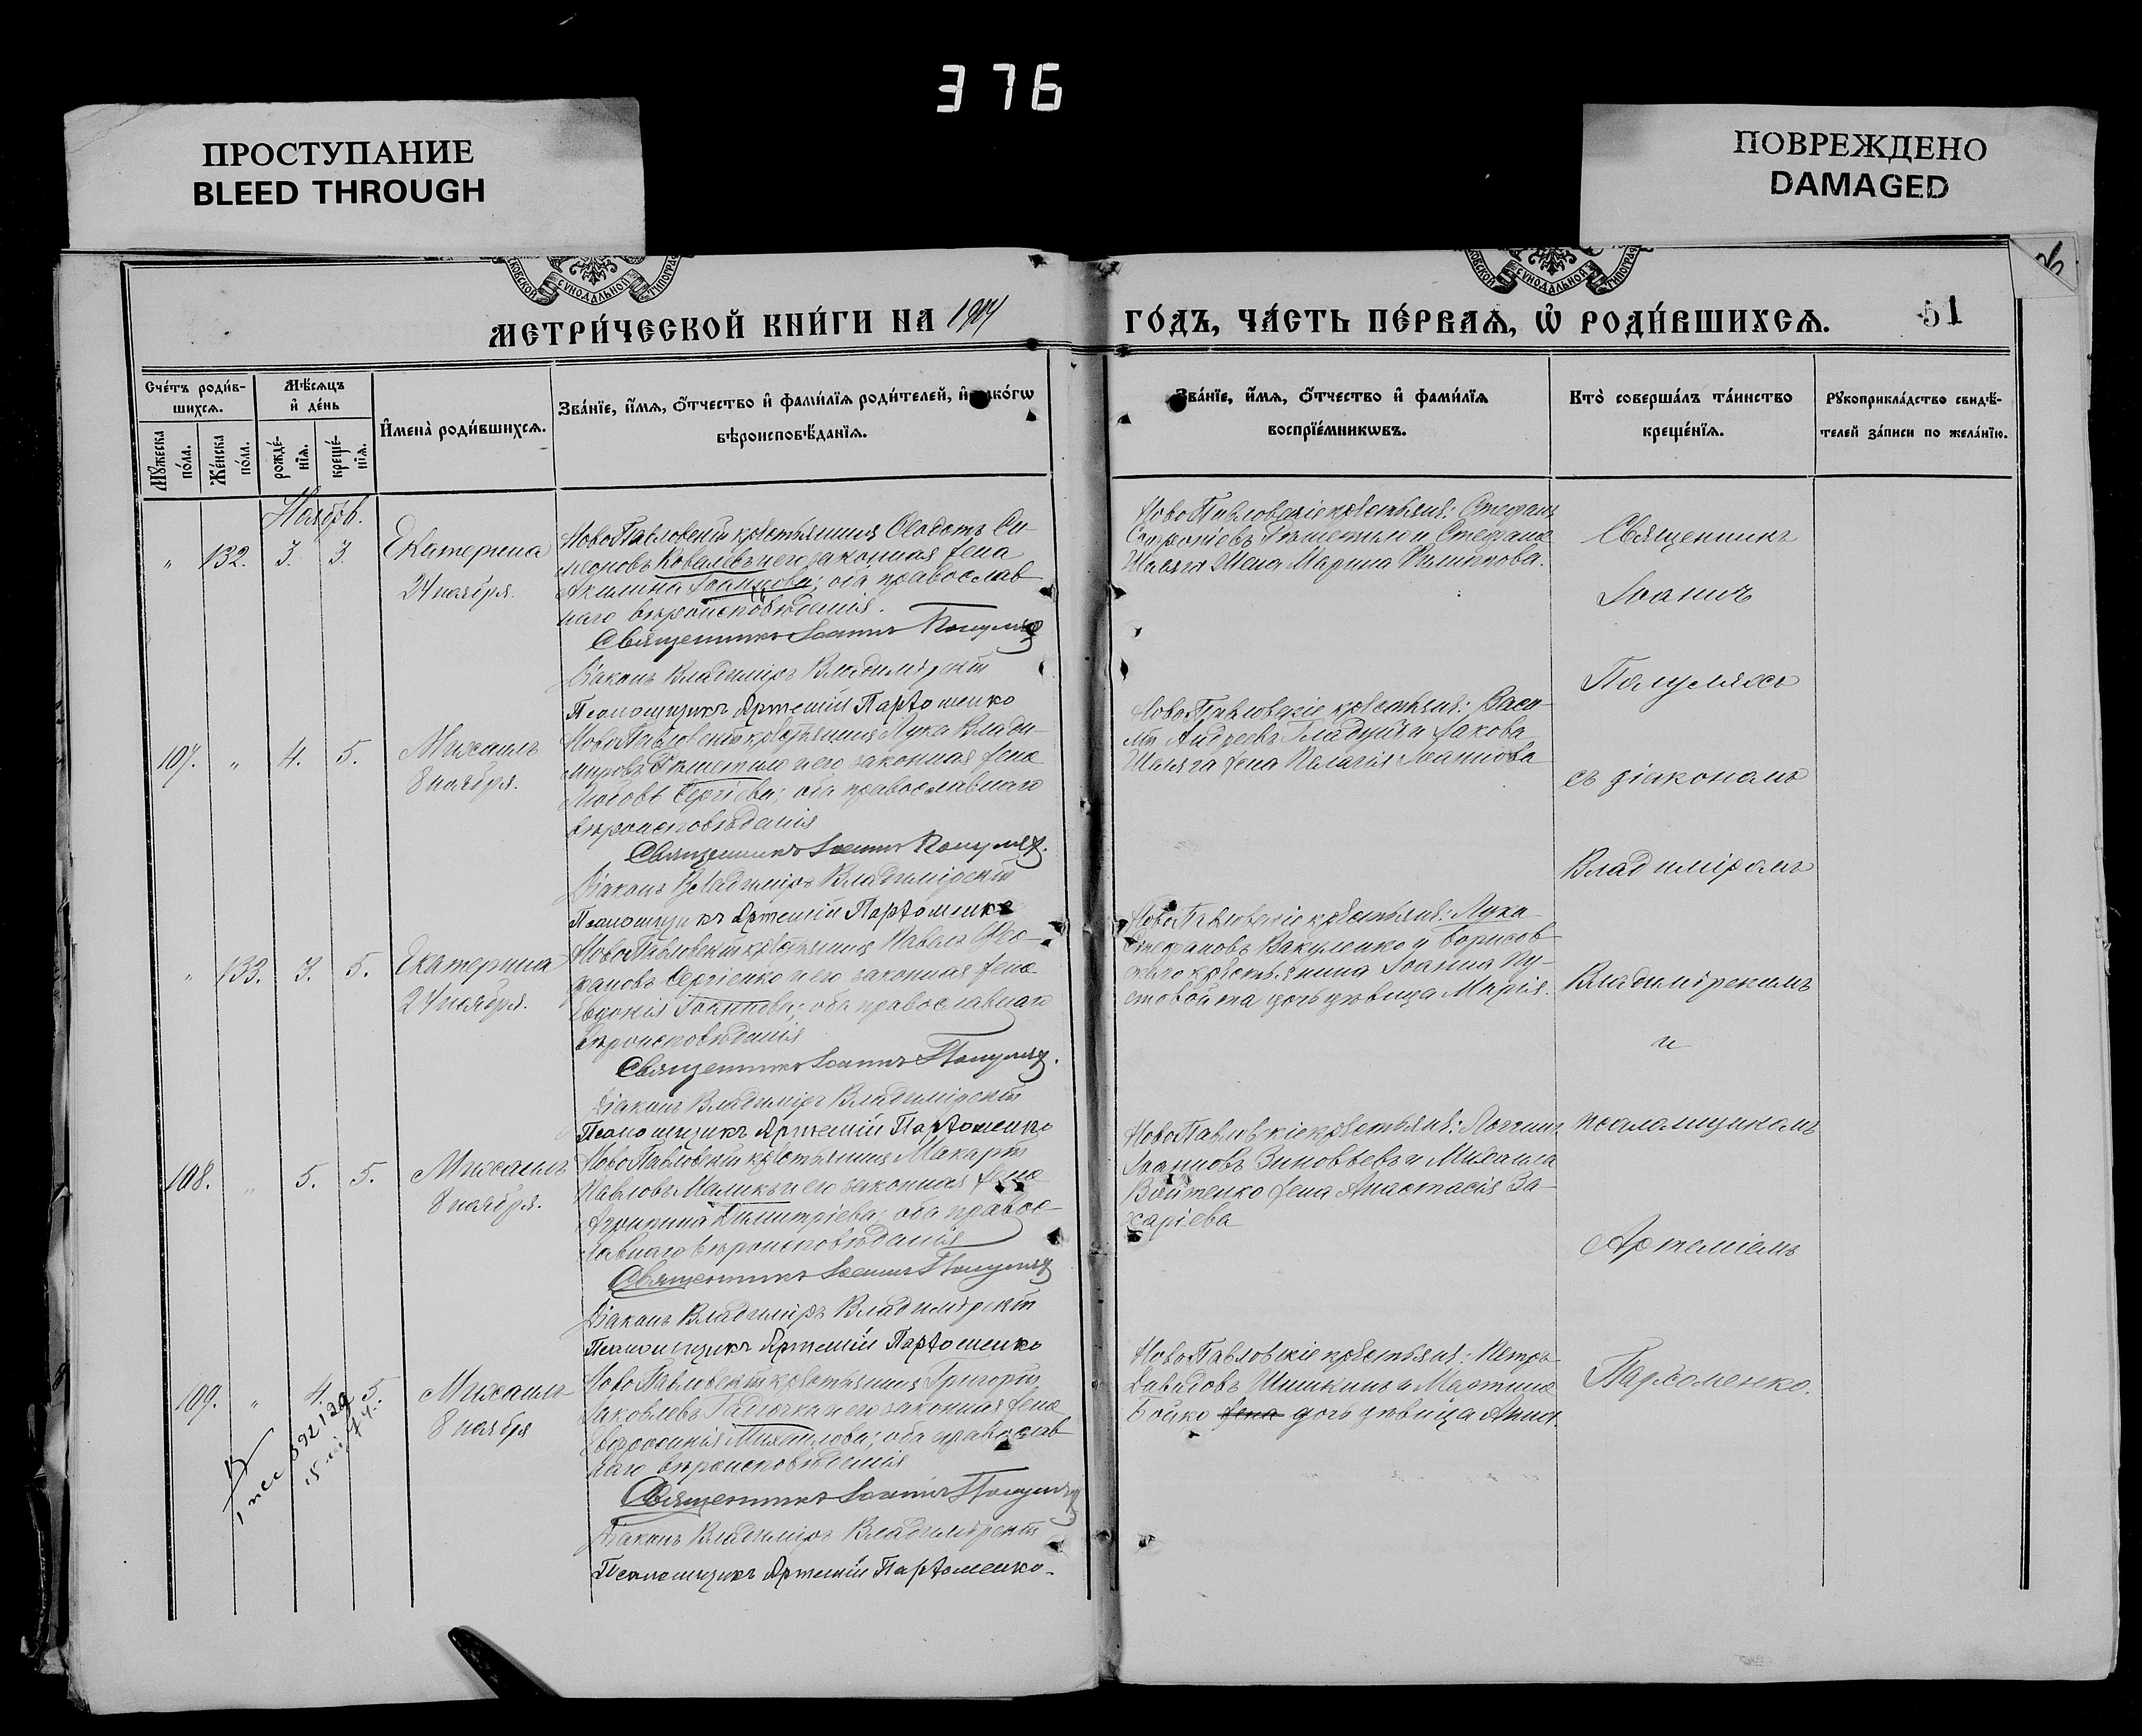 376
ПРОСТУПАНИЕ
BLEED THROUGH
ПОВРЕЖДЕНО
DAMAGED
СУНОДАЛЬНОЙ
СУНОДАЛЬНОЙ
МЕТРИ́ЧЕСКОЙ КНИ́ГИ НА 1904
ГО́ДЪ, ЧА́СТЬ ПЕ́РВАѦ, Ѡ҆ РОДИ́ВШИХСѦ.
51
Сче́тъ роди́в-
шихсѧ.
Мѣ́сѧцъ
и҆ де́нь
Мꙋ́жеска
по́ла.
Же́нска
по́ла.
рожде́-
нїѧ.
креще́-
нїѧ.
И҆мена̀ роди́вшихсѧ.
Зва́нїе, и҆́мѧ, ѻ҆́тчество и҆ фами́лїѧ роди́телей, и҆ како́гѡ
вѣроисповѣ́данїѧ.
Зва́нїе, и҆́мѧ, ѻ҆́тчество и҆ фами́лїѧ
воспрїе́мникѡвъ.
Кто̀ соверша́лъ та́инство
креще́нїѧ.
Рꙋкоприкла́дство свидѣ́-
телей за́писи по жела́нїю.
Ноябрь.
" 132. 3. 3. Екатерина
24 ноября.
НовоПавловскій крестьянинъ Ѳеодотъ Си-
меоновъ Коваль и его законная жена
Акилина Іоаннова; оба православ
наго вѣроисповѣданія.
Священникъ Іоаннъ Полуляхъ
Діаконъ Владиміръ Владимірскій
Псаломщикъ Артемій Пархоменко
НовоПавловскіе крестьяне: Стефанъ
Софроніевъ Рѣшетило и Стефана
Шаляга жена Марина Филиппова.
107. " 4. 5. Михаилъ
8 ноября.
НовоПавловскій крестьянинъ Лука Влади-
міровъ Рѣшетило и его законная жена
Любовь Сергіева; оба православнаго
вѣроисповѣданія
Священникъ Іоаннъ Полуляхъ.
Діаконъ Владиміръ Владимірскій
Псаломщикъ Артемій Пархоменко
НовоПавловскіе крестьяне: Васи-
лій Андреевъ Гладунъ и Іакова
Шаляга жена Пелагія Іоаннова
" 133. 3. 5. Екатерина
24 ноября.
НовоПавловскій крестьянинъ Павелъ Ѳео-
фановъ Сергіенко и его законная жена
Евдокія Іоаннова; оба православнаго
вѣроисповѣданія
Священникъ Іоаннъ Полуляхъ.
Діаконъ Владиміръ Владимірскій
Псаломщикъ Артемій Пархоменко
НовоПавловскіе крестьяне: Лука
Стефановъ Вакуленко и Борисов
скаго крестьянина Іоанна Пу-
стовойта дочь дѣвица Марія.
108. " 5. 5. Михаилъ
8 ноября.
НовоПавловскій крестьянинъ Макарій
Павловъ Маликъ и его законная жена
Агрипина Димитріева; оба правос-
лавнаго вѣроисповѣданія
Священникъ Іоаннъ Полуляхъ
Діаконъ Владиміръ Владимірскій
Псаломщикъ Артемій Пархоменко
НовоПавловскіе крестьяне: Логгинъ
Іоанновъ Зиновьевъ и Михаила
Войтенко жена Анастасія За-
харіева
109. " 4. 5. Михаилъ
8 ноября
НовоПавловскій крестьянинъ Григорій
Іаковлевъ Галочка и его законная жена
Евфросинія Михайлова; оба православ
наго вѣроисповѣданія
Священникъ Іоаннъ Полуляхъ
Діаконъ Владиміръ Владимірскій
Псаломщикъ Артемій Пархоменко.
НовоПавловскіе крестьяне: Петръ
Давидовъ Шишкинъ и Мартина
Бойко жена дочь дѣвица Анна.
Священникъ
Іоаннъ
Полуляхъ
съ діакономъ
Владиміромъ
Владимірскимъ
и
псаломщикомъ
Артеміемъ
Пархоменко.